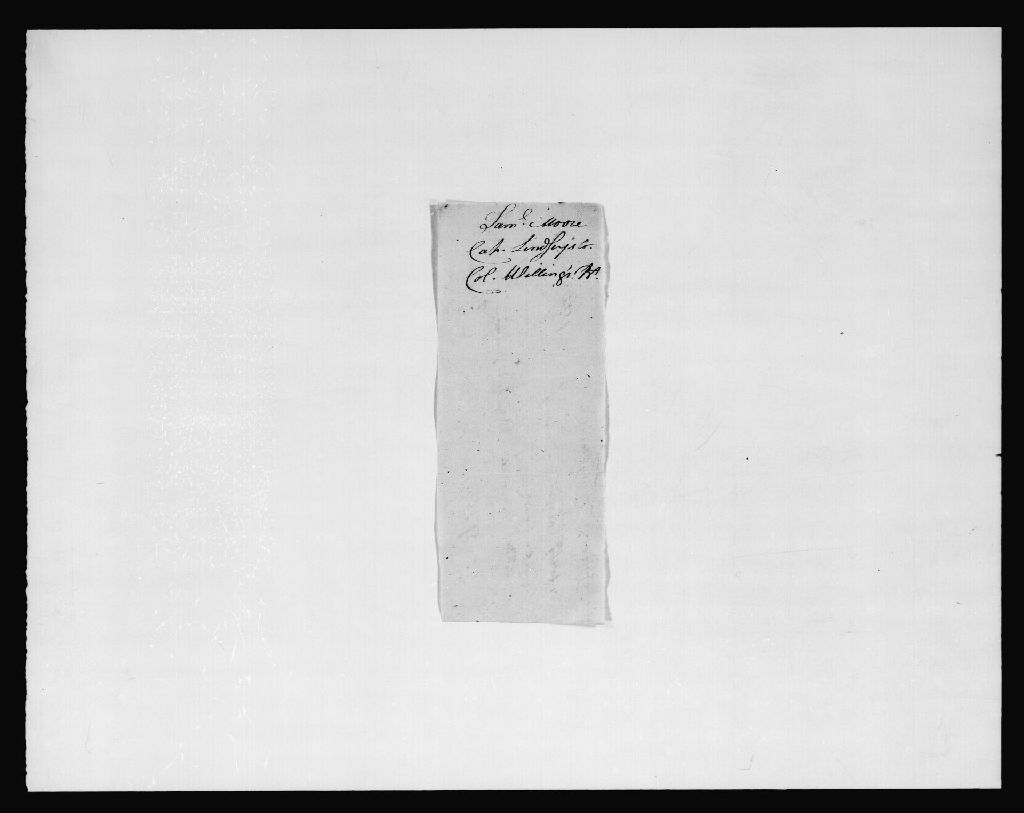 Saml. Moore
Cap. Lindseys Co.
Col. Willing's Rt.